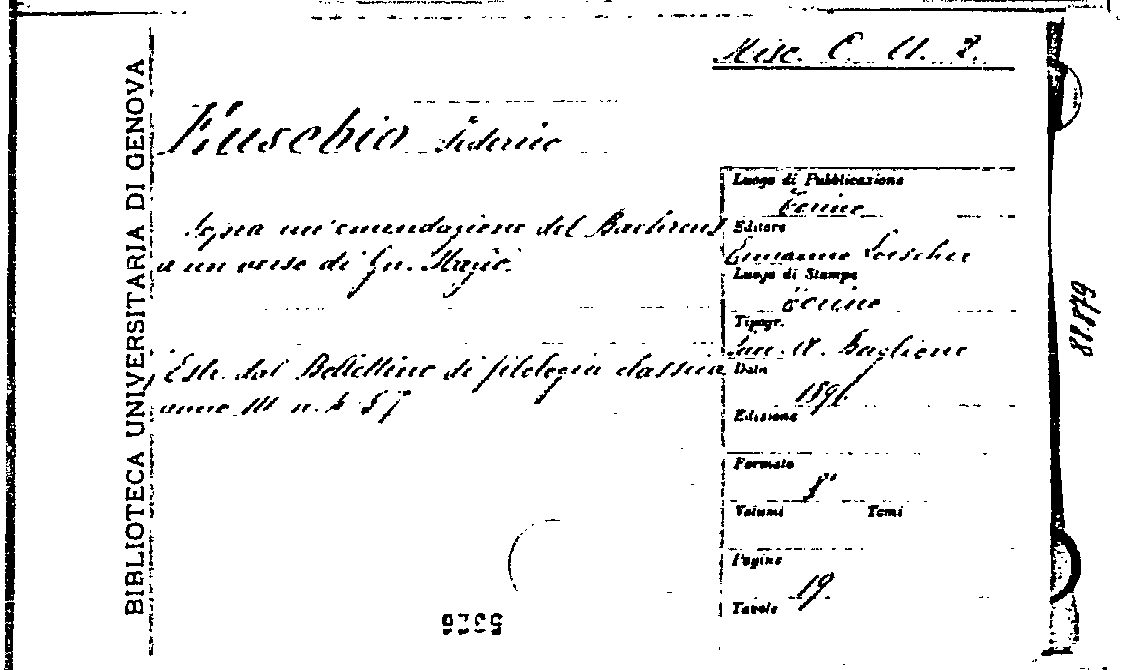 Misc. C. A. 2.
Eusebio Federico
Sopra un'emendazione del Baehrens
a un verso di Gr. Stazio.
Estr. dal Bollettino di filologia classica
anno III n.
BIBLIOTECA UNIVERSITARIA DI GENOVA
Luogo di Pubblicazione
Torino
Editore
Ermanno Loescher
Luogo di Stampa
Torino
Tipogr.
Baglione
Data
1896
Edizione
Formato
8°
Volumi Tomi
Pagine
19
Tavole
88.879